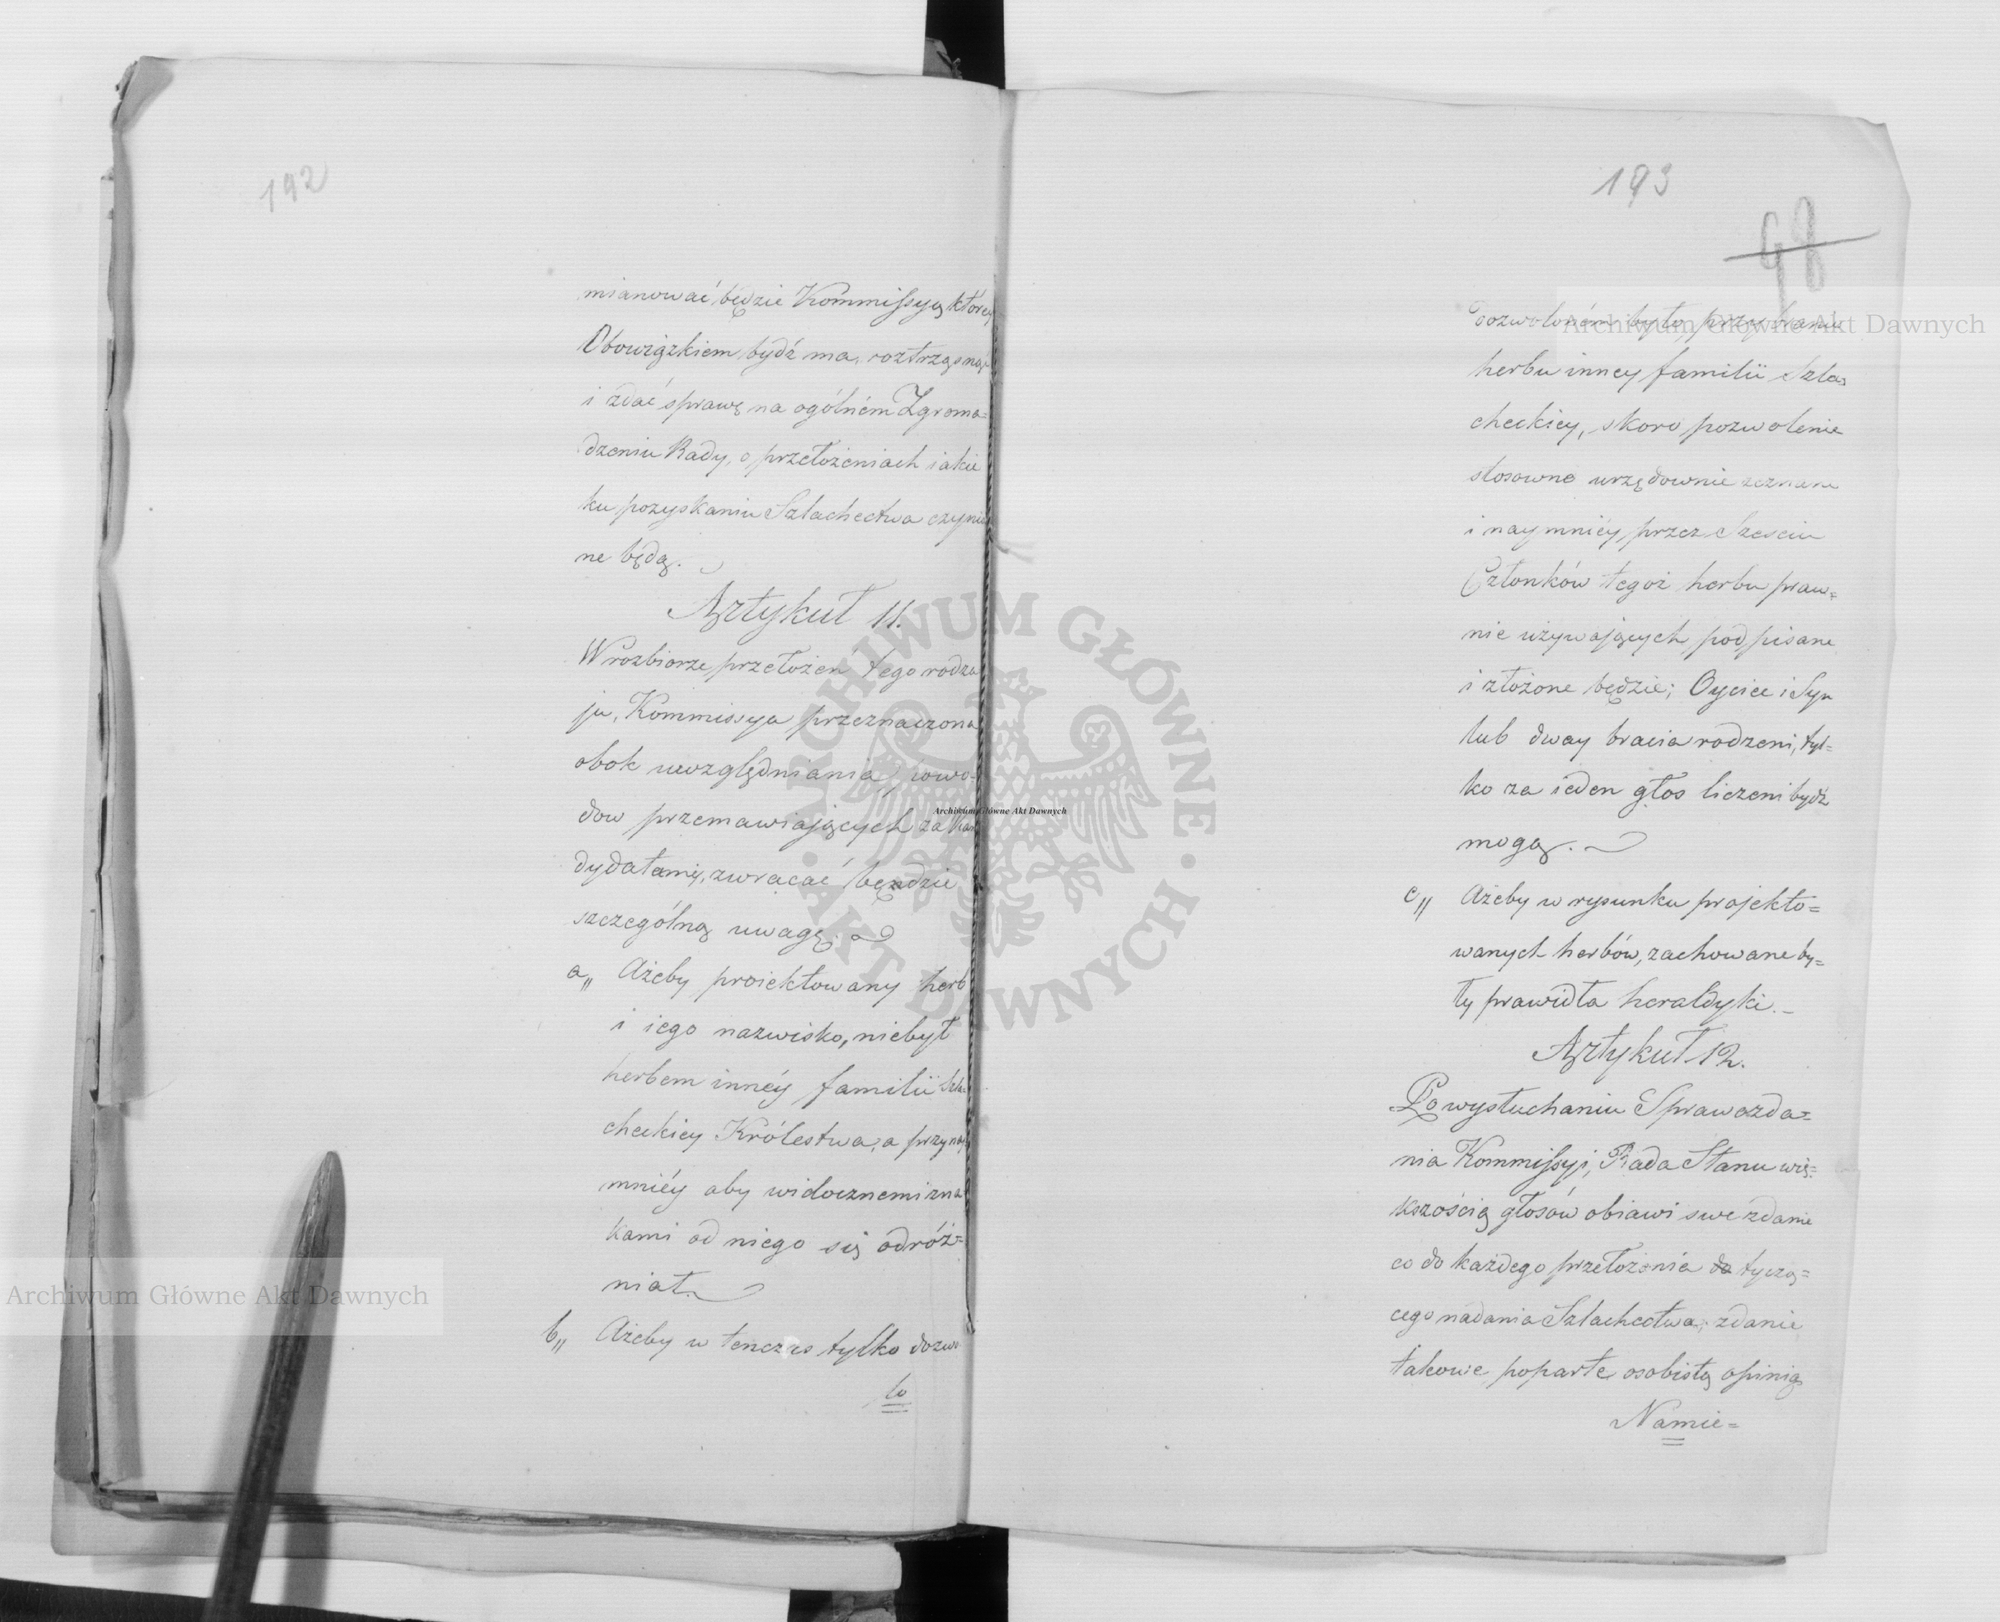 192
mianować będzie Kommissyą którey
Obowiązkiem bydź ma, roztrząsnąć
i zdać sprawę na ogólném Zgroma=
dzeniu Rady, o przełożeniach iakie
ku pozyskaniu Szlachectwa czynio
ne będą.
Artykuł 11.
W rozbiorze przełożeń tego rodza
ju, Kommissya przeznaczona
obok uwzględniania powo-
dow przemawiających za Kan
dydatami, zwracać będzie
szczególną uwagę.
a,, Ażeby proiektowany herb
i iego nazwisko, niebył
herbem innéy familii Szla-
checkiey Królestwa, a przynay
mniéy aby widocznemi zna
kami od niego się odróż=
niał.
b,, Ażeby w tenczas tylko dozwo
lo
193
98
dozwoloném było, przybranie
herbu inney familii Szla=
checkiey, skoro pozwolenie
stosowne urzędownie zeznane
i naymniéy przez Sześciu
Członków tegoż herbu praw=
nie używających podpisane
i złożone będzie; Oyciec i Syn
lub dway bracia rodzeni, tyl=
ko za ieden głos liczeni bydź
mogą.
c,, Ażeby w rysunku projekto=
wanych herbów, zachowane by=
ły prawidła heraldyki.
Artykuł 12.
Po wysłuchaniu Sprawozda=
nia Kommissyi, Rada Stanu wię=
kszością głosów obiawi swe zdanie
co do każdego przełożenia do tyczą=
cego nadania Szlachectwa; zdanie
takowe poparte osobistą opinią
Namie=
Archiwum Główne Akt Dawnych
Archiwum Główne Akt Dawnych
Archiwum Główne Akt Dawnych
ARCHIWUM GŁÓWNE
AKT DAWNYCH